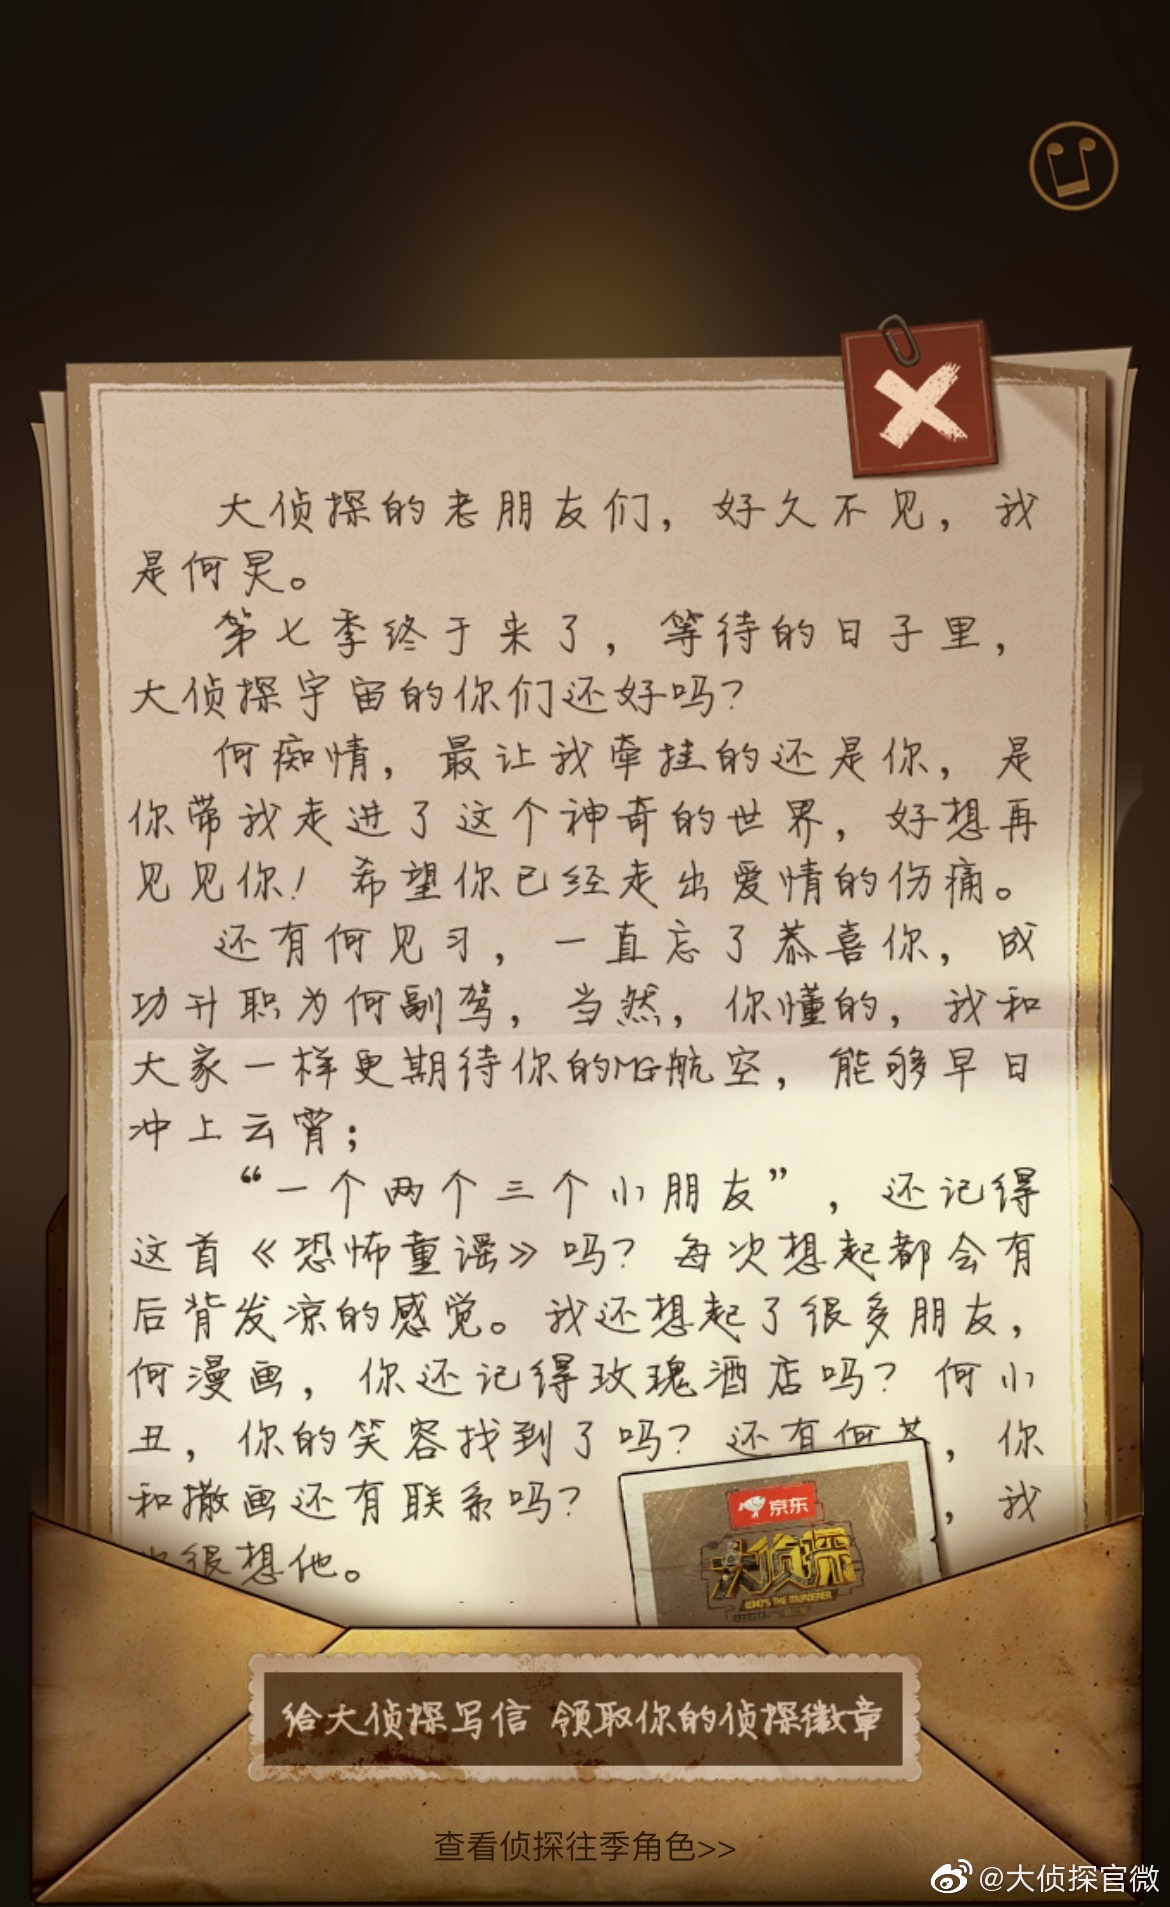 大侦探的老朋友们，好久不见，我
是何炅。
第七季终于来了，等待的日子里，
大侦探宇宙的你们还好吗？
何痴情，最让我牵挂的还是你，是
你带我走进了这个神奇的世界，好想再
见见你！希望你已经走出爱情的伤痛。
还有何见习，一直忘了恭喜你，成
功升职为何副驾，当然，你懂的，我和
大家一样更期待你的MG航空，能够早日
冲上云霄；
“一个两个三个小朋友”，还记得
这首《恐怖童谣》吗？每次想起都会有
后背发凉的感觉。我还想起了很多朋友，
何漫画，你还记得玫瑰酒店吗？何小
丑，你的笑容找到了吗？还有何，你
和撒画还有联系吗？，我
很想他。
京东
大侦探
WHO'S THE MURDERER
给大侦探写信 领取你的侦探徽章
查看侦探往季角色>>
@大侦探官微